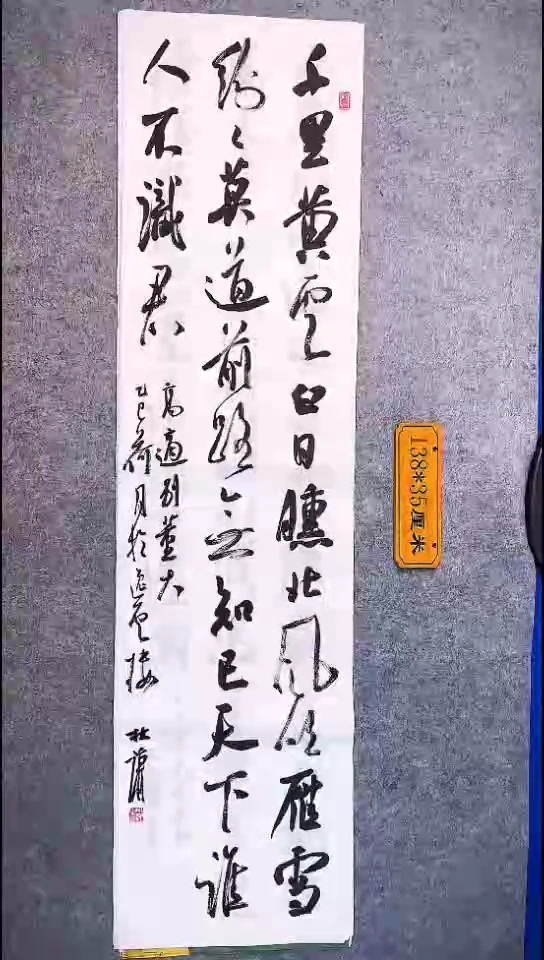 千里黄云白日曛北风吹雁雪
纷々莫道前路无知己天下谁
人不識君
高適别董大
乙巳荷月於逸雲楼
138*35厘米